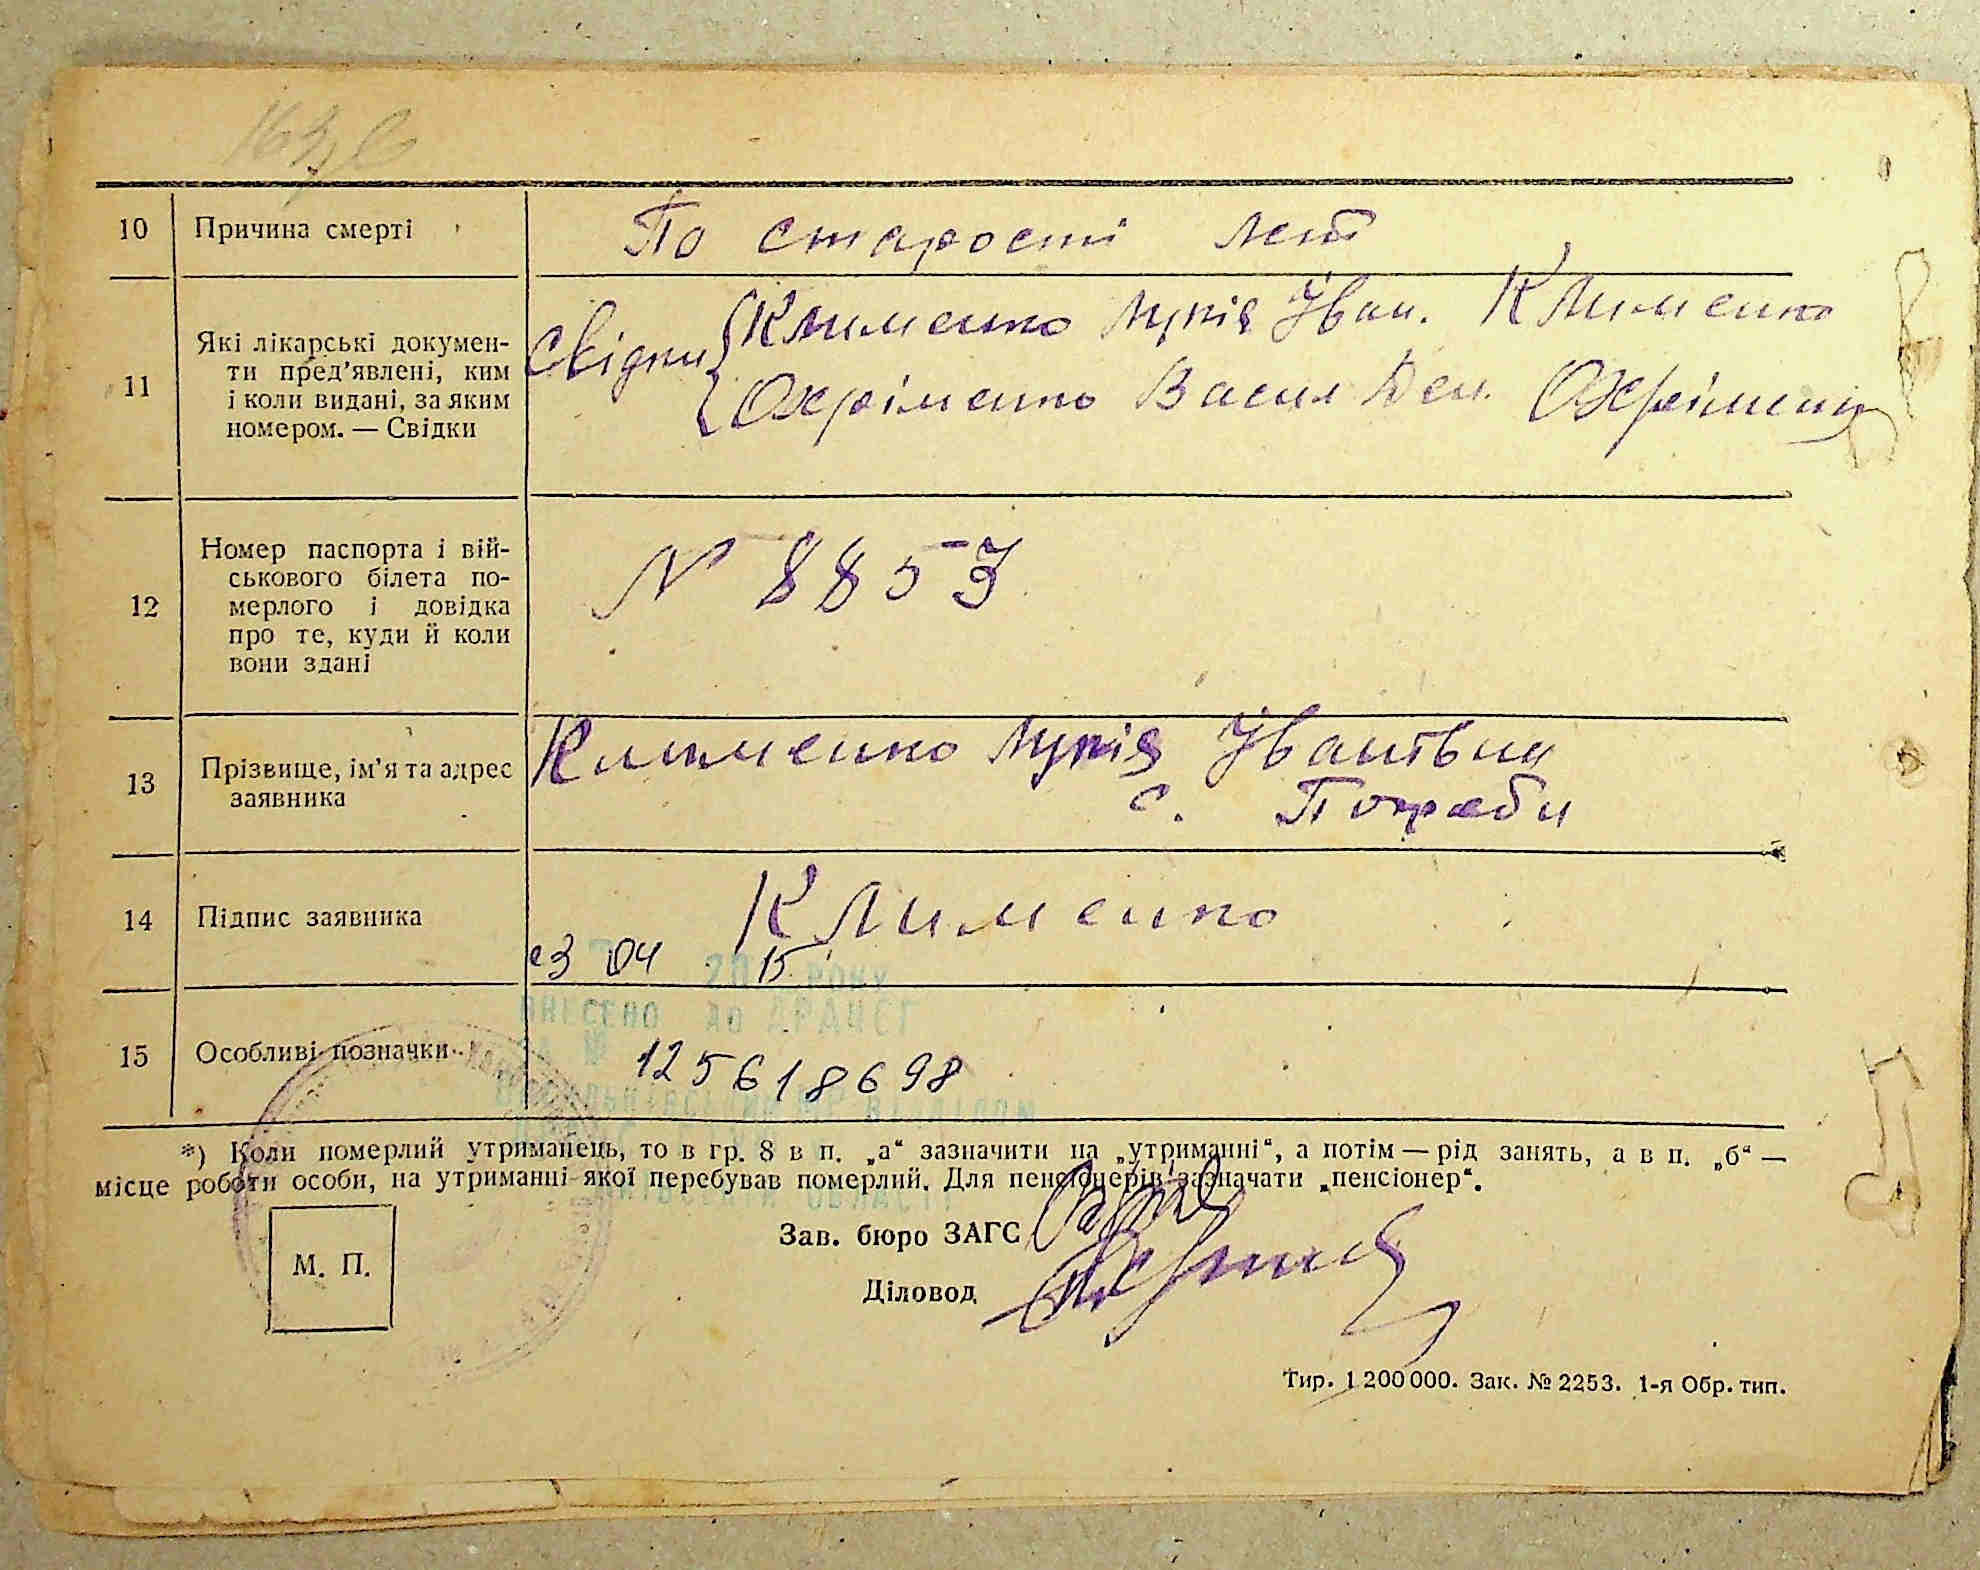 10 Причина смерті По старості літ
11 Які лікарські докумен-
ти пред'явлені, ким
і коли видані, за яким
номером. — Свідки
Свідки Клименко Лукія Іван. Клименко
Охріменко Васил Дем. Охріменко
12 Номер паспорта і вій-
ськового білета по-
мерлого і довідка
про те, куди й коли
вони здані
N 8853
13 Прізвище, ім'я та адрес
заявника
Клименко Лукія Іванівна
с. Погреби
14 Підпис заявника Клименко
04 20 15 РОКУ
ВНЕСЕНО ДО ДРАЦСГ
15 Особливі позначки
125618698
*) Коли померлий утриманець, то в гр. 8 в п. „а“ зазначити на „утриманні“, а потім — рід занять, а в п. „б“ —
місце роботи особи, на утриманні якої перебував померлий. Для пенсіонерів зазначати „пенсіонер“.
ОБЛАСТІ
Зав. бюро ЗАГС
М. П.
Діловод
Тир. 1 200 000. Зак. № 2253. 1-я Обр. тип.